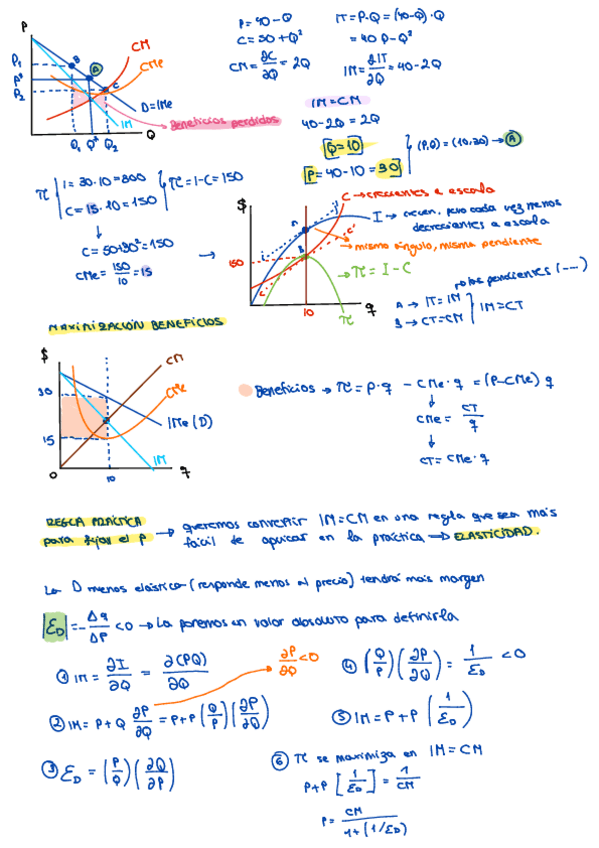 P
P = 40 - Q
IT = P·Q = (40-Q)·Q
C = 50 + Q²
= 40P - Q²
CM = ∂C/∂Q = 2Q
IM = ∂IT/∂Q = 40 - 2Q
CM
CMe
P₁
B
A
P*
P₂
C
D = IMe
IM
Q₁ Q* Q₂
Q
Beneficios perdidos
IM = CM
40 - 2Q = 2Q
Q = 10
P = 40 - 10 = 30
(P,Q) = (10,30) → A
π | I = 30·10 = 300
C = 15·10 = 150
π = I - C = 150
C = 50+10² = 150
CMe = 150/10 = 15
→
$
C → crecientes a escala
I → crecen, pero cada vez menos
decrecientes a escala
mismo ángulo, misma pendiente
π = I - C
150
A
B
c
c'
10
q
π
→ las pendientes (----)
A → IT = IM
B → CT = CM
IM = CT
MAXIMIZACIÓN BENEFICIOS
$
CM
CMe
30
15
IMe (D)
IM
0
10
q
Beneficios → π = P·q - CMe·q = (P-CMe) q
CMe = CT/q
CT = CMe·q
REGLA PRÁCTICA
para fijar el P → queremos convertir IM = CM en una regla que sea más
fácil de aplicar en la práctica → ELASTICIDAD.
La D menos elástica (responde menos al precio) tendrá más margen
|ε_D| = - Δq/ΔP < 0 → La ponemos en valor absoluto para definirla
① IM = ∂I/∂Q = ∂(PQ)/∂Q
∂P/∂Q < 0
④ (Q/P)(∂P/∂Q) = 1/ε_D < 0
② IM = P + Q ∂P/∂Q = P + P (Q/P)(∂P/∂Q)
⑤ IM = P + P (1/ε_D)
③ ε_D = (P/Q)(∂Q/∂P)
⑥ π se maximiza en IM = CM
P + P [1/ε_D] = 1/CM
P = CM/1+(1/ε_D)